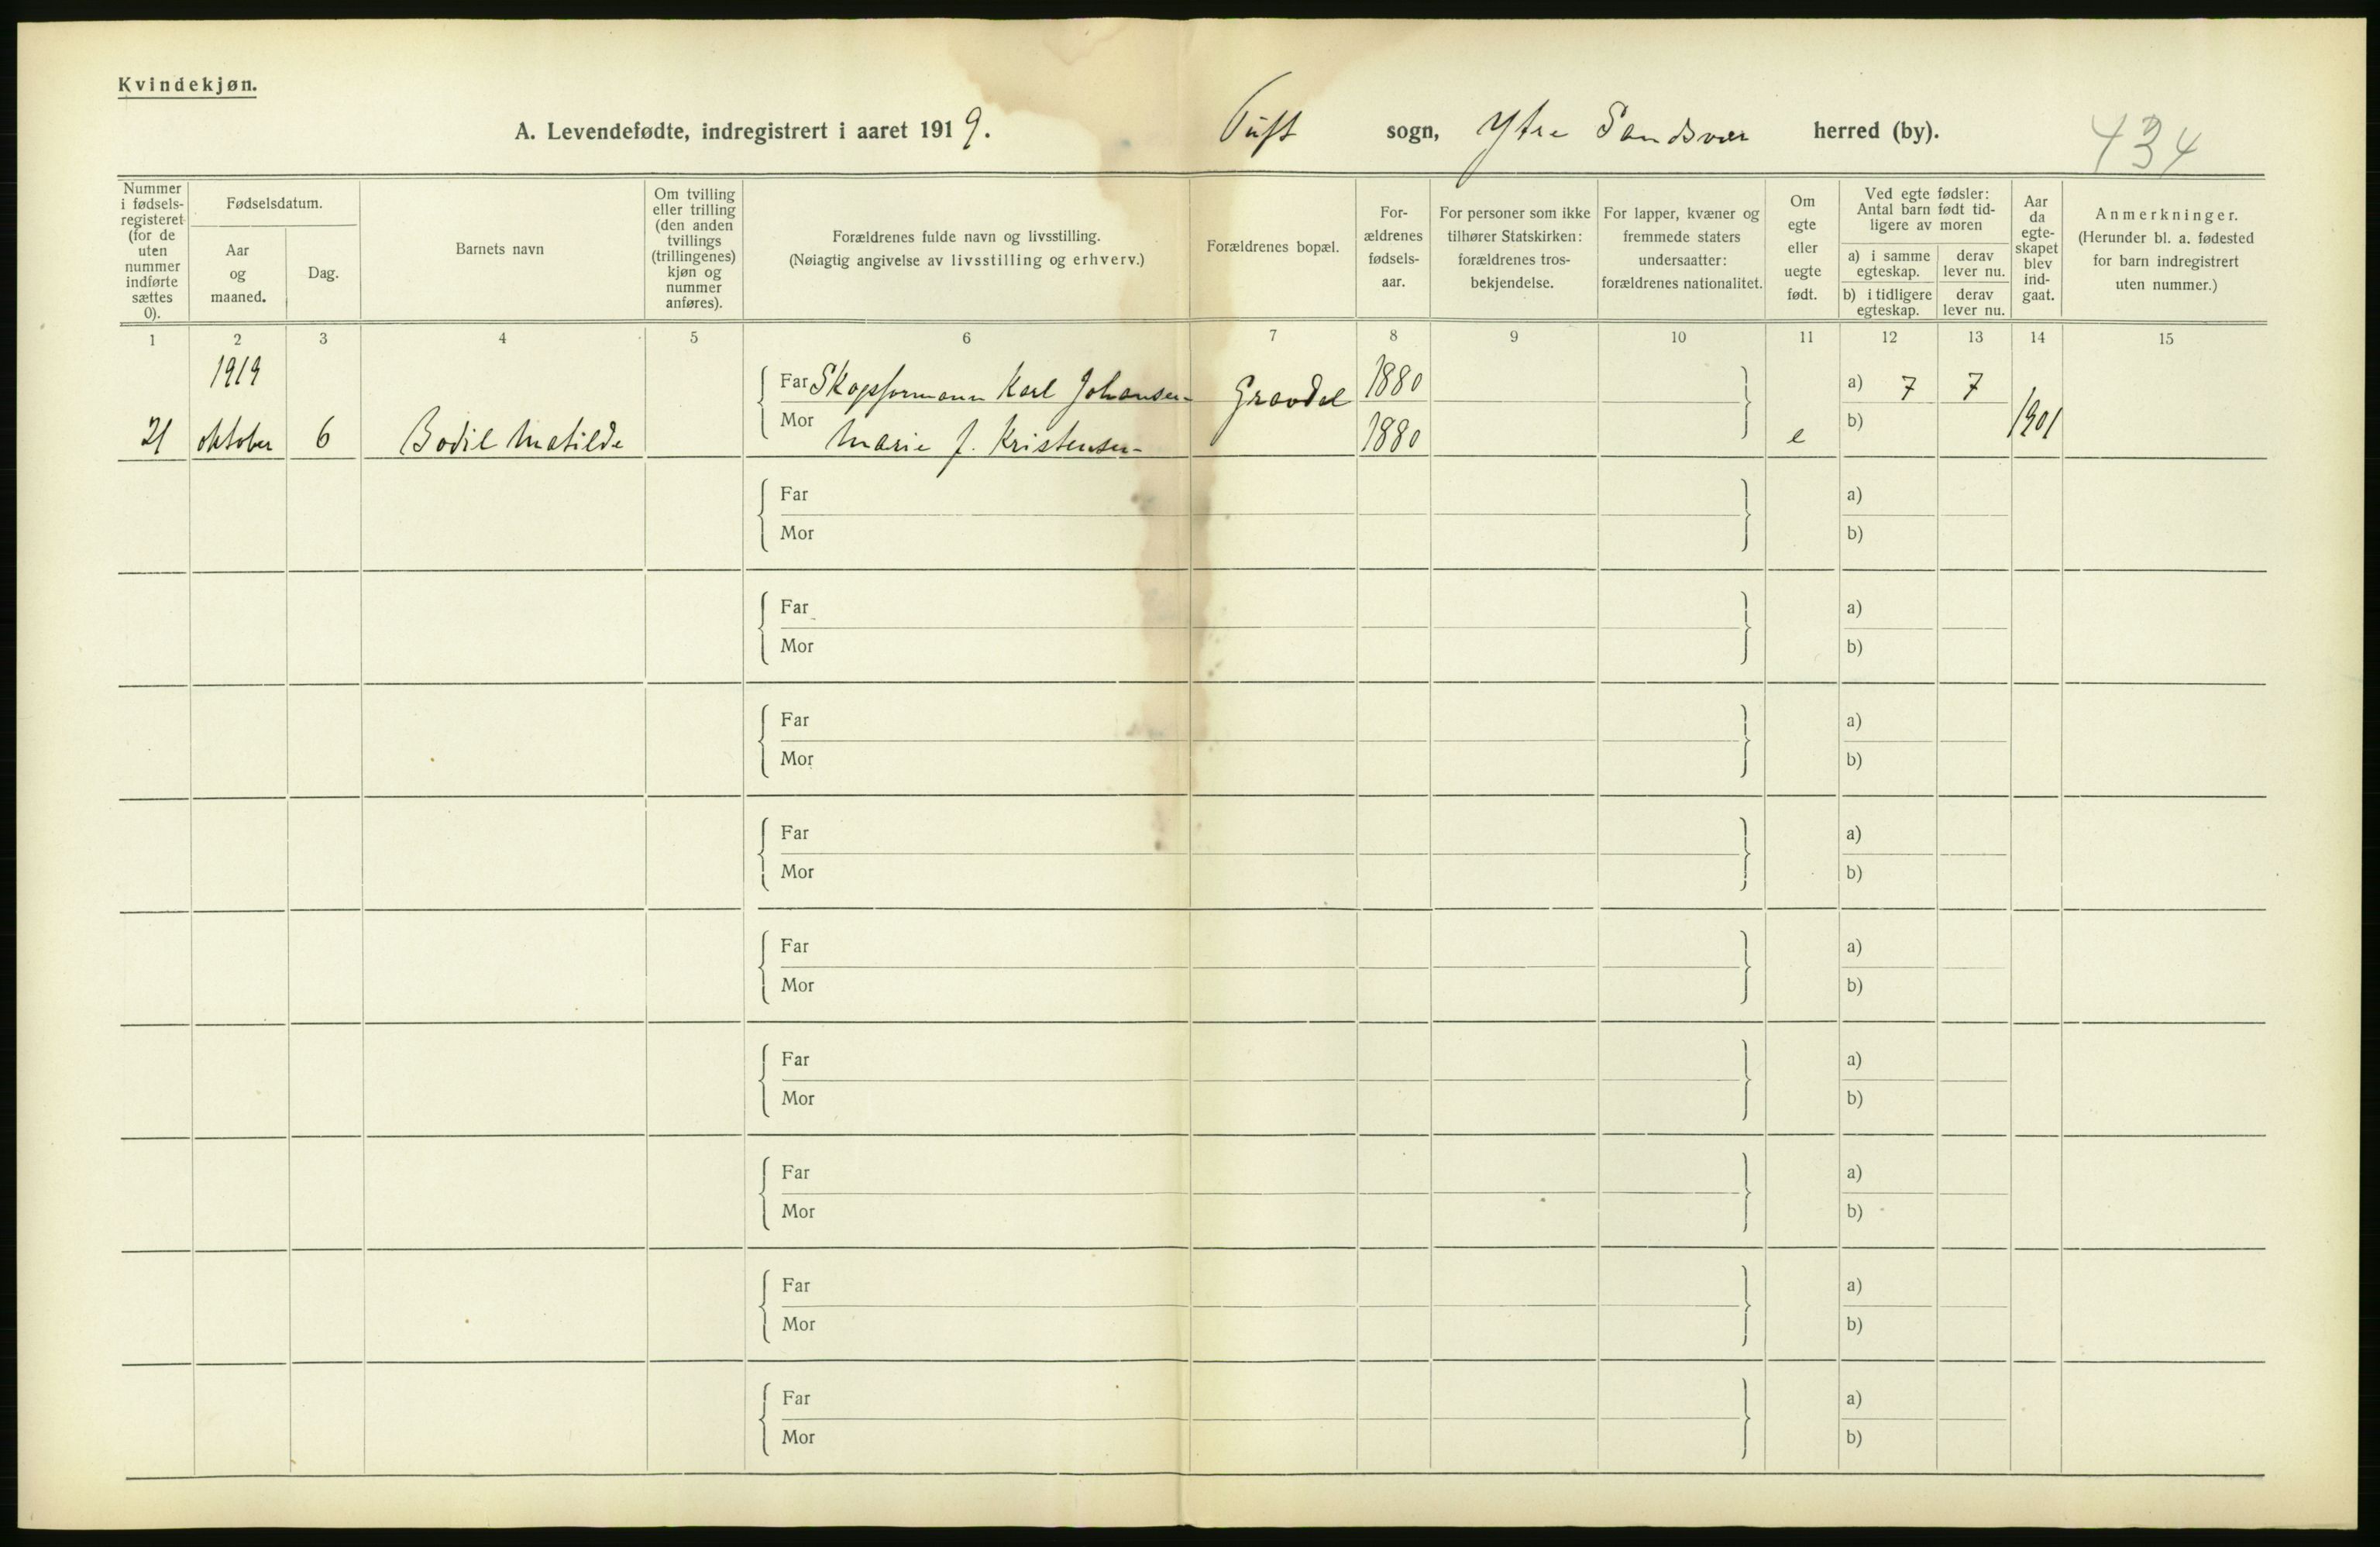 Kvindekjøn.
A. Levendefødte, indregistrert i aaret 1919. Tuft sogn, Ytre Sandsvær herred (by). 434
Nummer i fødsels-registeret (for de uten nummer indførte sættes 0).
Fødselsdatum.
Aar og maaned.
Dag.
Barnets navn
Om tvilling eller trilling (den anden tvillings (trillingenes) kjøn og nummer anføres).
Forældrenes fulde navn og livsstilling.
(Nøiagtig angivelse av livsstilling og erhverv.)
Forældrenes bopæl.
For-ældrenes fødsels-aar.
For personer som ikke tilhører Statskirken: forældrenes tros-bekjendelse.
For lapper, kvæner og fremmede staters undersaatter: forældrenes nationalitet.
Om egte eller uegte født.
Ved egte fødsler: Antal barn født tid-ligere av moren
a) i samme egteskap.
derav lever nu.
b) i tidligere egteskap.
derav lever nu.
Aar da egte-skapet blev ind-gaat.
Anmerkninger.
(Herunder bl. a. fødested for barn indregistrert uten nummer.)
1 2 3 4 5 6 7 8 9 10 11 12 13 14 15
1919
Far Skogsformann Karl Johansen Gravdal 1880 a) 7 7
21 oktober 6 Bodil Matilde Mor Marie f. Kristensen 1880 e b) 1901
Far a)
Mor b)
Far a)
Mor b)
Far a)
Mor b)
Far a)
Mor b)
Far a)
Mor b)
Far a)
Mor b)
Far a)
Mor b)
Far a)
Mor b)
Far a)
Mor b)